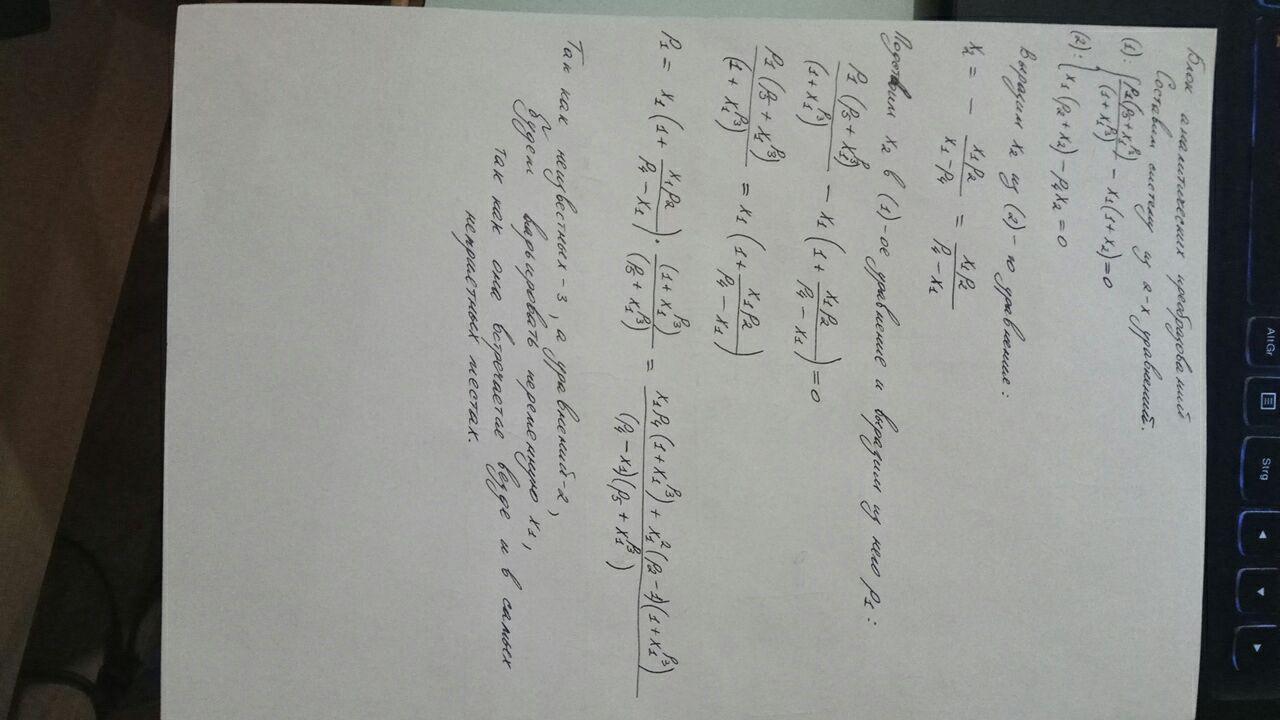 AltGr
Strg
Блок аналитических преобразований
Составим систему из 2-х уравнений.
(1): { P1(P5+x1^P3)/(1+x1^P3) - x1(1+x2)=0
(2): { x1(P2+x2)-P4x2=0
Выразим x2 из (2)-го уравнения:
x2 = - x1P2/(x1-P4) = x1P2/(P4-x1)
Подставим x2 в (1)-ое уравнение и выразим из него P1:
P1(P5+x1^P3)/(1+x1^P3) - x1(1+ x1P2/(P4-x1))=0
P1(P5+x1^P3)/(1+x1^P3) = x1(1+ x1P2/(P4-x1))
P1 = x1(1+ x1P2/(P4-x1)) · (1+x1^P3)/(P5+x1^P3) = (x1P4(1+x1^P3)+x1^2(P2-1)(1+x1^P3))/((P4-x1)(P5+x1^P3))
Так как неизвестных-3, а уравнений-2,
будем варьировать переменную x1,
так как она встречается везде и в самых
неприятных местах.